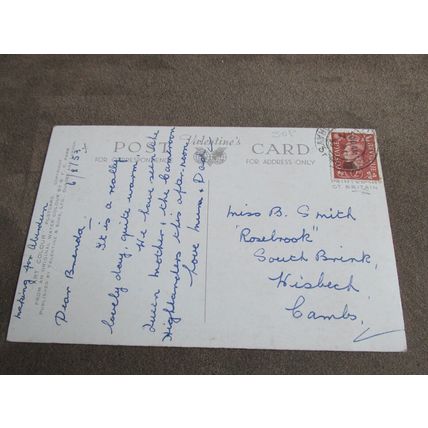 POST CARD
Valentine's
FOR CORRESPONDENCE
FOR ADDRESS ONLY
ART COLOUR
6/8/53
Dear Brenda.
It is a really
lovely day, quite warm.
We have seen the
Queen Mother, & the Cameroon
Highlanders this afternoon
love mum & Dad.
making for Aberdeen
Miss B. Smith
"Rosebrook"
South Brink,
Wisbech
Cambs.
GT. BRITAIN